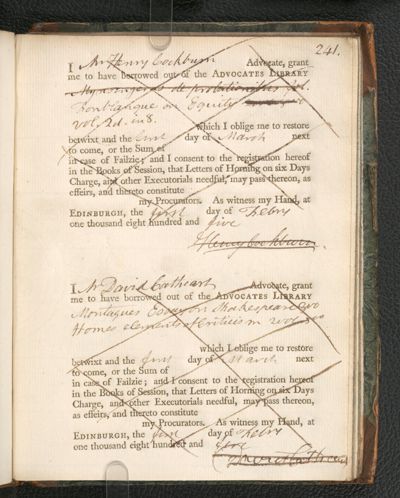 241.
I Mr Henry Cockburn Advocate, grant
me to have borrowed out of the ADVOCATES LIBRARY
Mynsingerus de probationibus
Fonblanque on Equity
vol. 2d. in 8.
which I oblige me to restore
betwixt and the first day of March next
to come, or the Sum of
in case of Failzie; and I consent to the registration hereof
in the Books of Session, that Letters of Horning on six Days
Charge, and other Executorials needful, may pass thereon, as
effeirs, and thereto constitute
my Procurators. As witness my Hand, at
EDINBURGH, the first day of Febry
one thousand eight hundred and five
Henry Cockburn
I Mr David Cathcart Advocate, grant
me to have borrowed out of the ADVOCATES LIBRARY
Montagues Essay on Shakespeare 8vo
Homes elements of criticism 2 vol. 8vo
which I oblige me to restore
betwixt and the first day of March next
to come, or the Sum of
in case of Failzie; and I consent to the registration hereof
in the Books of Session, that Letters of Horning on six Days
Charge, and other Executorials needful, may pass thereon,
as effeirs, and thereto constitute
my Procurators. As witness my Hand, at
EDINBURGH, the first day of Febry
one thousand eight hundred and five
David Cathcart